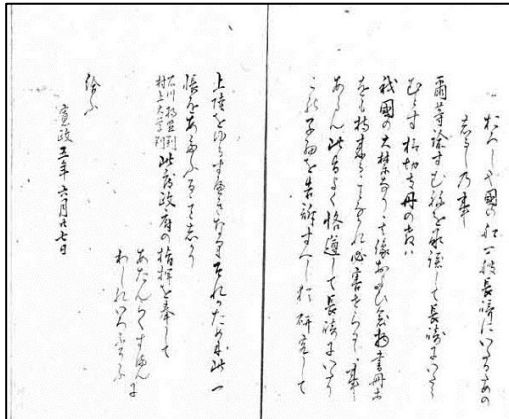 おろしや國の船一艘長崎にいたるための
志るし乃事
爾等諭すむねを承諾して長崎にいたら
むとす抑切支丹の教ハ
我國の大禁なり其像および器物書冊等
をも持来ることなかれ必害せらるゝ事
あらん此旨よく恪遵して長崎にいたり
この子細を告訴すへし猶研究して
上陸をゆるすへきなりそれかため此一
張をあたふること志かり
石川将監判
村上大学判
此度政府の指揮を奉して
あたむらつくすまんに
わしれいろふ
給ふ
寛政五年六月廿七日